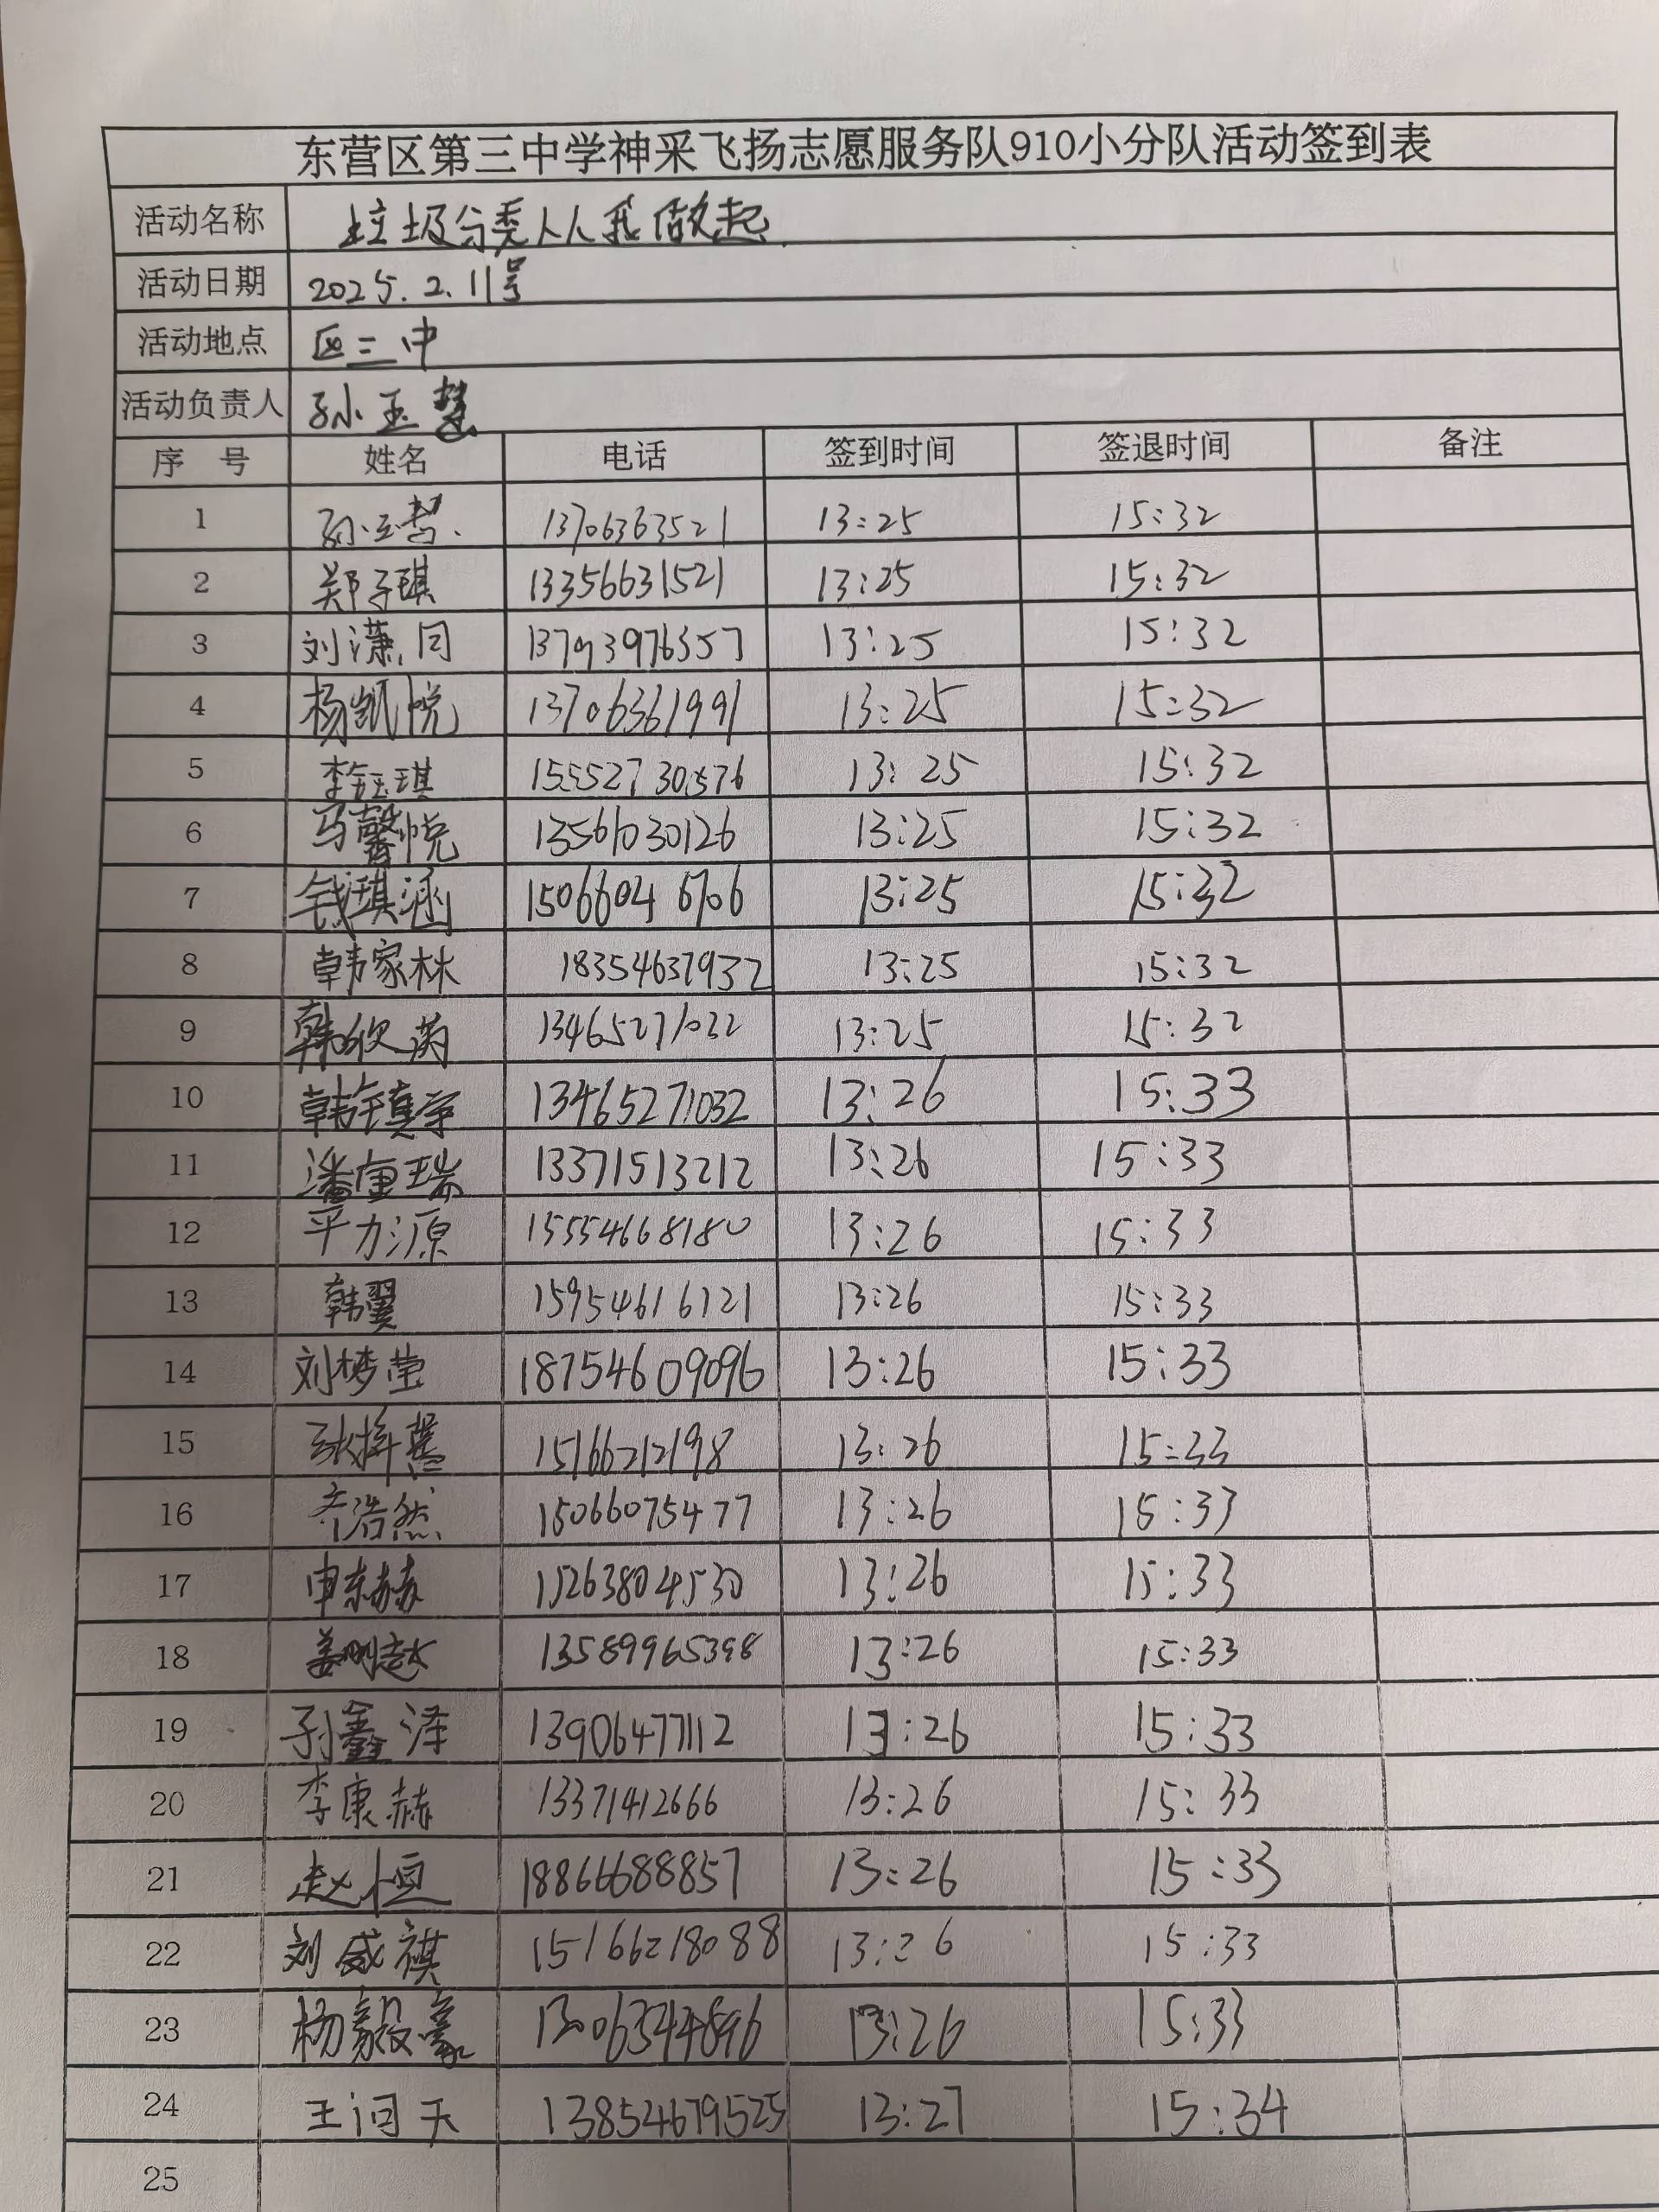 东营区第三中学神采飞扬志愿服务队910小分队活动签到表
活动名称 垃圾分类人人我做起
活动日期 2025.2.11号
活动地点 区三中
活动负责人 孙玉慧
序 号 姓名 电话 签到时间 签退时间 备注
1 13706363521 13:25 15:32
2 郑子琪 13356631521 13:25 15:32
3 刘潇月 13793976357 13:25 15:32
4 杨凯悦 13706361991 13:25 15:32
5 李钰琪 15552730576 13:25 15:32
6 马馨悦 13561030126 13:25 15:32
7 钱琪涵 15066046706 13:25 15:32
8 韩家林 18354637932 13:25 15:32
9 13465271032 13:25 15:32
10 韩镇宇 13465271032 13:26 15:33
11 13371513212 13:26 15:33
12 平力源 15554668180 13:26 15:33
13 韩翼 15954616121 13:26 15:33
14 刘梦莹 18754609096 13:26 15:33
15 15166212198 13:26 15:33
16 齐浩然 15066075477 13:26 15:33
17 申东赫 15263804530 13:26 15:33
18 13589965398 13:26 15:33
19 孙鑫泽 13906477112 13:26 15:33
20 李康赫 13371412666 13:26 15:33
21 赵恒 18866688857 13:26 15:33
22 刘威祺 15166218088 13:26 15:33
23 杨毅豪 13:26 15:33
24 王问天 13854679525 13:27 15:34
25